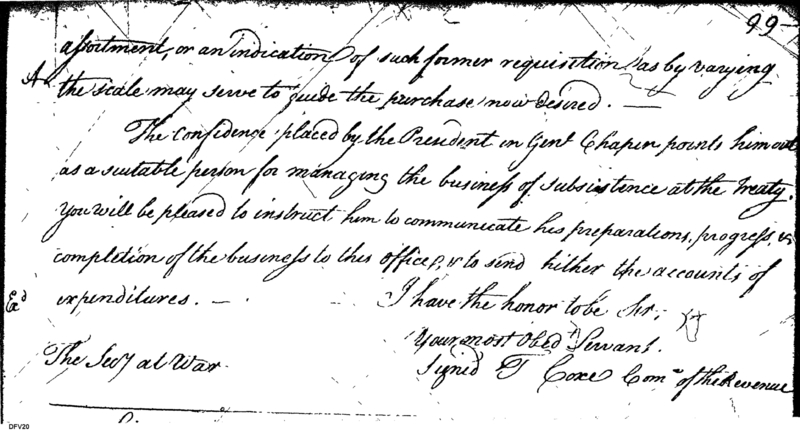 99
assortment, or an indication of such former requisition as by varying
A
the scale may serve to guide the purchase now desired. —
The confidence placed by the President in Genl. Chapin points him out
as a suitable person for managing the business of subsistence at the Treaty.
You will be pleased to instruct him to communicate his preparations, progress, &
completion of the business to this office, & to send hither the accounts of
Exd
expenditures. —
I have the honor to be Sir,
Your most Obedt Servant.
The Secy at War
Signed T Coxe Comr of the Revenue
DFV20